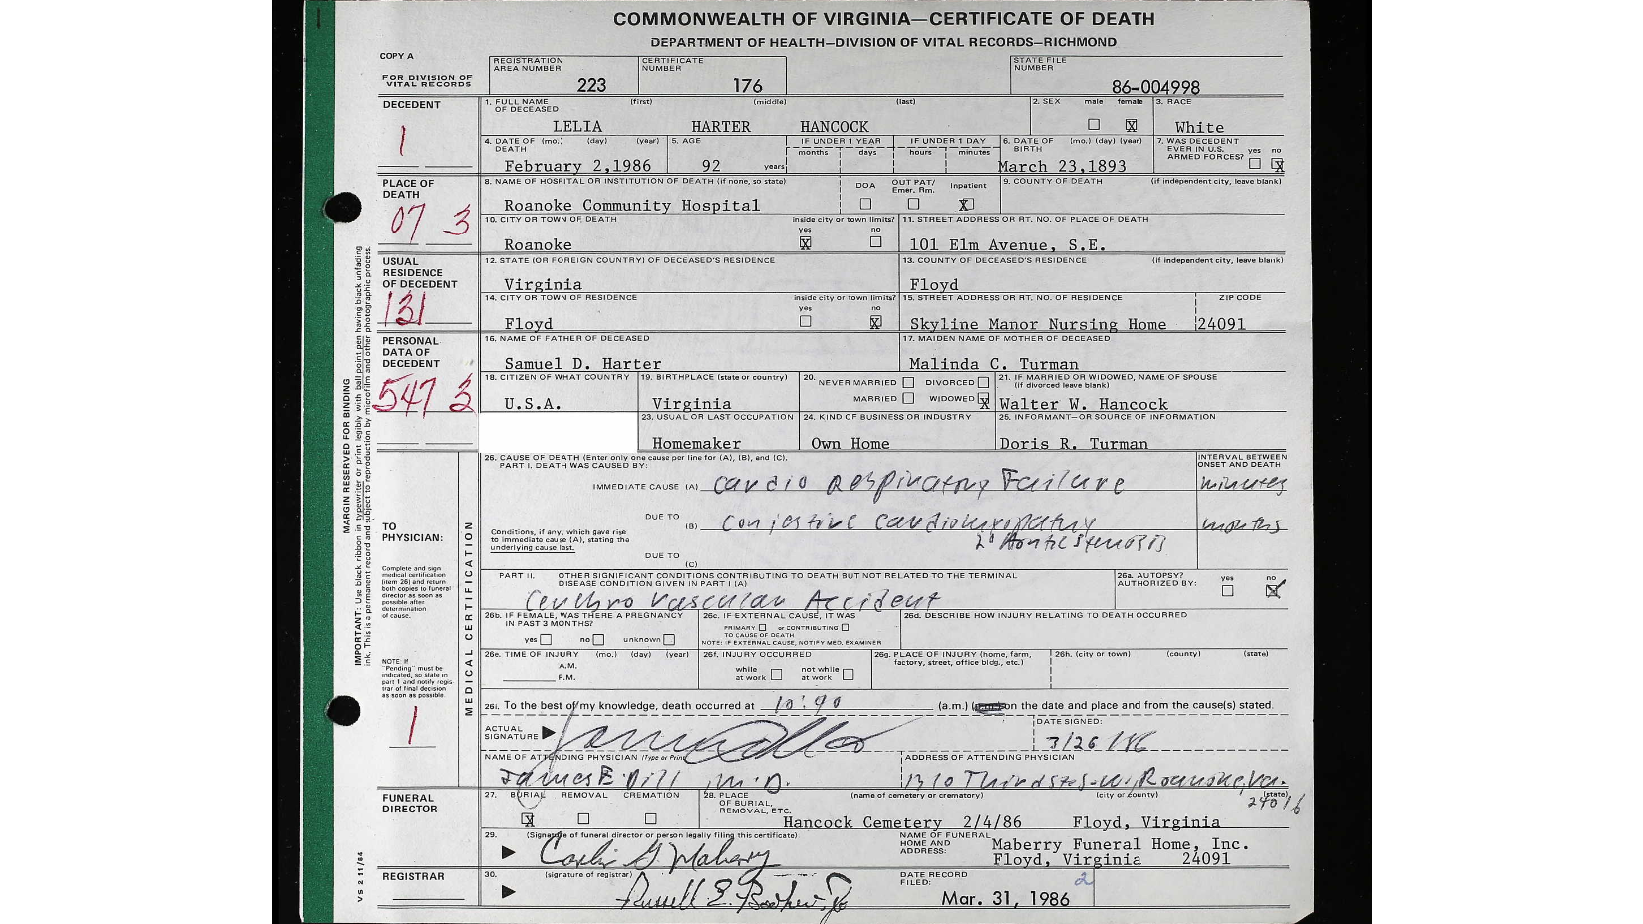 COMMONWEALTH OF VIRGINIA—CERTIFICATE OF DEATH
DEPARTMENT OF HEALTH—DIVISION OF VITAL RECORDS—RICHMOND
COPY A
FOR DIVISION OF VITAL RECORDS
REGISTRATION AREA NUMBER 223
CERTIFICATE NUMBER 176
STATE FILE NUMBER 86-004998
DECEDENT
1
1. FULL NAME OF DECEASED (first) (middle) (last)
LELIA HARTER HANCOCK
2. SEX male female X
3. RACE White
4. DATE OF DEATH (mo.) (day) (year) February 2,1986
5. AGE 92 years
IF UNDER 1 YEAR months days
IF UNDER 1 DAY hours minutes
6. DATE OF BIRTH (mo.) (day) (year) March 23,1893
7. WAS DECEDENT EVER IN U.S. ARMED FORCES? yes no X
PLACE OF DEATH
07 3
8. NAME OF HOSPITAL OR INSTITUTION OF DEATH (if none, so state)
Roanoke Community Hospital
DOA OUT PAT/ Emer. Rm. Inpatient X
9. COUNTY OF DEATH (if independent city, leave blank)
10. CITY OR TOWN OF DEATH inside city or town limits? yes X no
Roanoke
11. STREET ADDRESS OR RT. NO. OF PLACE OF DEATH
101 Elm Avenue, S.E.
USUAL RESIDENCE OF DECEDENT
131
12. STATE (OR FOREIGN COUNTRY) OF DECEASED'S RESIDENCE
Virginia
13. COUNTY OF DECEASED'S RESIDENCE (if independent city, leave blank)
Floyd
14. CITY OR TOWN OF RESIDENCE inside city or town limits? yes no X
Floyd
15. STREET ADDRESS OR RT. NO. OF RESIDENCE ZIP CODE
Skyline Manor Nursing Home 24091
PERSONAL DATA OF DECEDENT
547 3
16. NAME OF FATHER OF DECEASED
Samuel D. Harter
17. MAIDEN NAME OF MOTHER OF DECEASED
Malinda C. Turman
18. CITIZEN OF WHAT COUNTRY
U.S.A.
19. BIRTHPLACE (state or country)
Virginia
20. NEVER MARRIED DIVORCED
MARRIED WIDOWED X
21. IF MARRIED OR WIDOWED, NAME OF SPOUSE (if divorced leave blank)
Walter W. Hancock
23. USUAL OR LAST OCCUPATION
Homemaker
24. KIND OF BUSINESS OR INDUSTRY
Own Home
25. INFORMANT—OR SOURCE OF INFORMATION
Doris R. Turman
MARGIN RESERVED FOR BINDING
IMPORTANT: Use black ribbon in typewriter or print legibly with ball point pen having black unfading
ink. This is a permanent record and subject to reproduction by microfilm and other photographic process.
MEDICAL CERTIFICATION
TO PHYSICIAN:
Complete and sign medical certification (item 26) and return both copies to funeral director as soon as possible after determination of cause.
NOTE: If "Pending" must be indicated, so state in part 1 and notify registrar of final decision as soon as possible.
1
26. CAUSE OF DEATH (Enter only one cause per line for (A), (B), and (C).
PART I. DEATH WAS CAUSED BY:
INTERVAL BETWEEN ONSET AND DEATH
IMMEDIATE CAUSE (A) Cardio Respiratory Failure minutes
DUE TO (B) Conjestive Cardiomyopathy months
2° Aortic Stenosis
Conditions, if any, which gave rise to immediate cause (A), stating the underlying cause last.
DUE TO (C)
PART II. OTHER SIGNIFICANT CONDITIONS CONTRIBUTING TO DEATH BUT NOT RELATED TO THE TERMINAL DISEASE CONDITION GIVEN IN PART I (A)
Cerebro Vascular Accident
26a. AUTOPSY? AUTHORIZED BY: yes no X
26b. IF FEMALE, WAS THERE A PREGNANCY IN PAST 3 MONTHS? yes no unknown
26c. IF EXTERNAL CAUSE, IT WAS
PRIMARY or CONTRIBUTING
TO CAUSE OF DEATH
NOTE: IF EXTERNAL CAUSE, NOTIFY MED. EXAMINER
26d. DESCRIBE HOW INJURY RELATING TO DEATH OCCURRED
26e. TIME OF INJURY (mo.) (day) (year)
A.M.
P.M.
26f. INJURY OCCURRED
while at work not while at work
26g. PLACE OF INJURY (home, farm, factory, street, office bldg., etc.)
26h. (city or town) (county) (state)
26i. To the best of my knowledge, death occurred at (a.m.) on the date and place and from the cause(s) stated.
ACTUAL SIGNATURE
DATE SIGNED: 3/26/86
NAME OF ATTENDING PHYSICIAN (Type or Print)
James E. Dill M.D.
ADDRESS OF ATTENDING PHYSICIAN
1310 Third St S.W, Roanoke, Va.
24016
FUNERAL DIRECTOR
27. BURIAL X REMOVAL CREMATION
28. PLACE OF BURIAL, REMOVAL, ETC. (name of cemetery or crematory) (city or county) (state)
Hancock Cemetery 2/4/86 Floyd, Virginia
29. (Signature of funeral director or person legally filing this certificate)
NAME OF FUNERAL HOME AND ADDRESS:
Maberry Funeral Home, Inc.
Floyd, Virginia 24091
REGISTRAR
30. (signature of registrar)
DATE RECORD FILED: 2
Mar. 31, 1986
VS 2 11/84